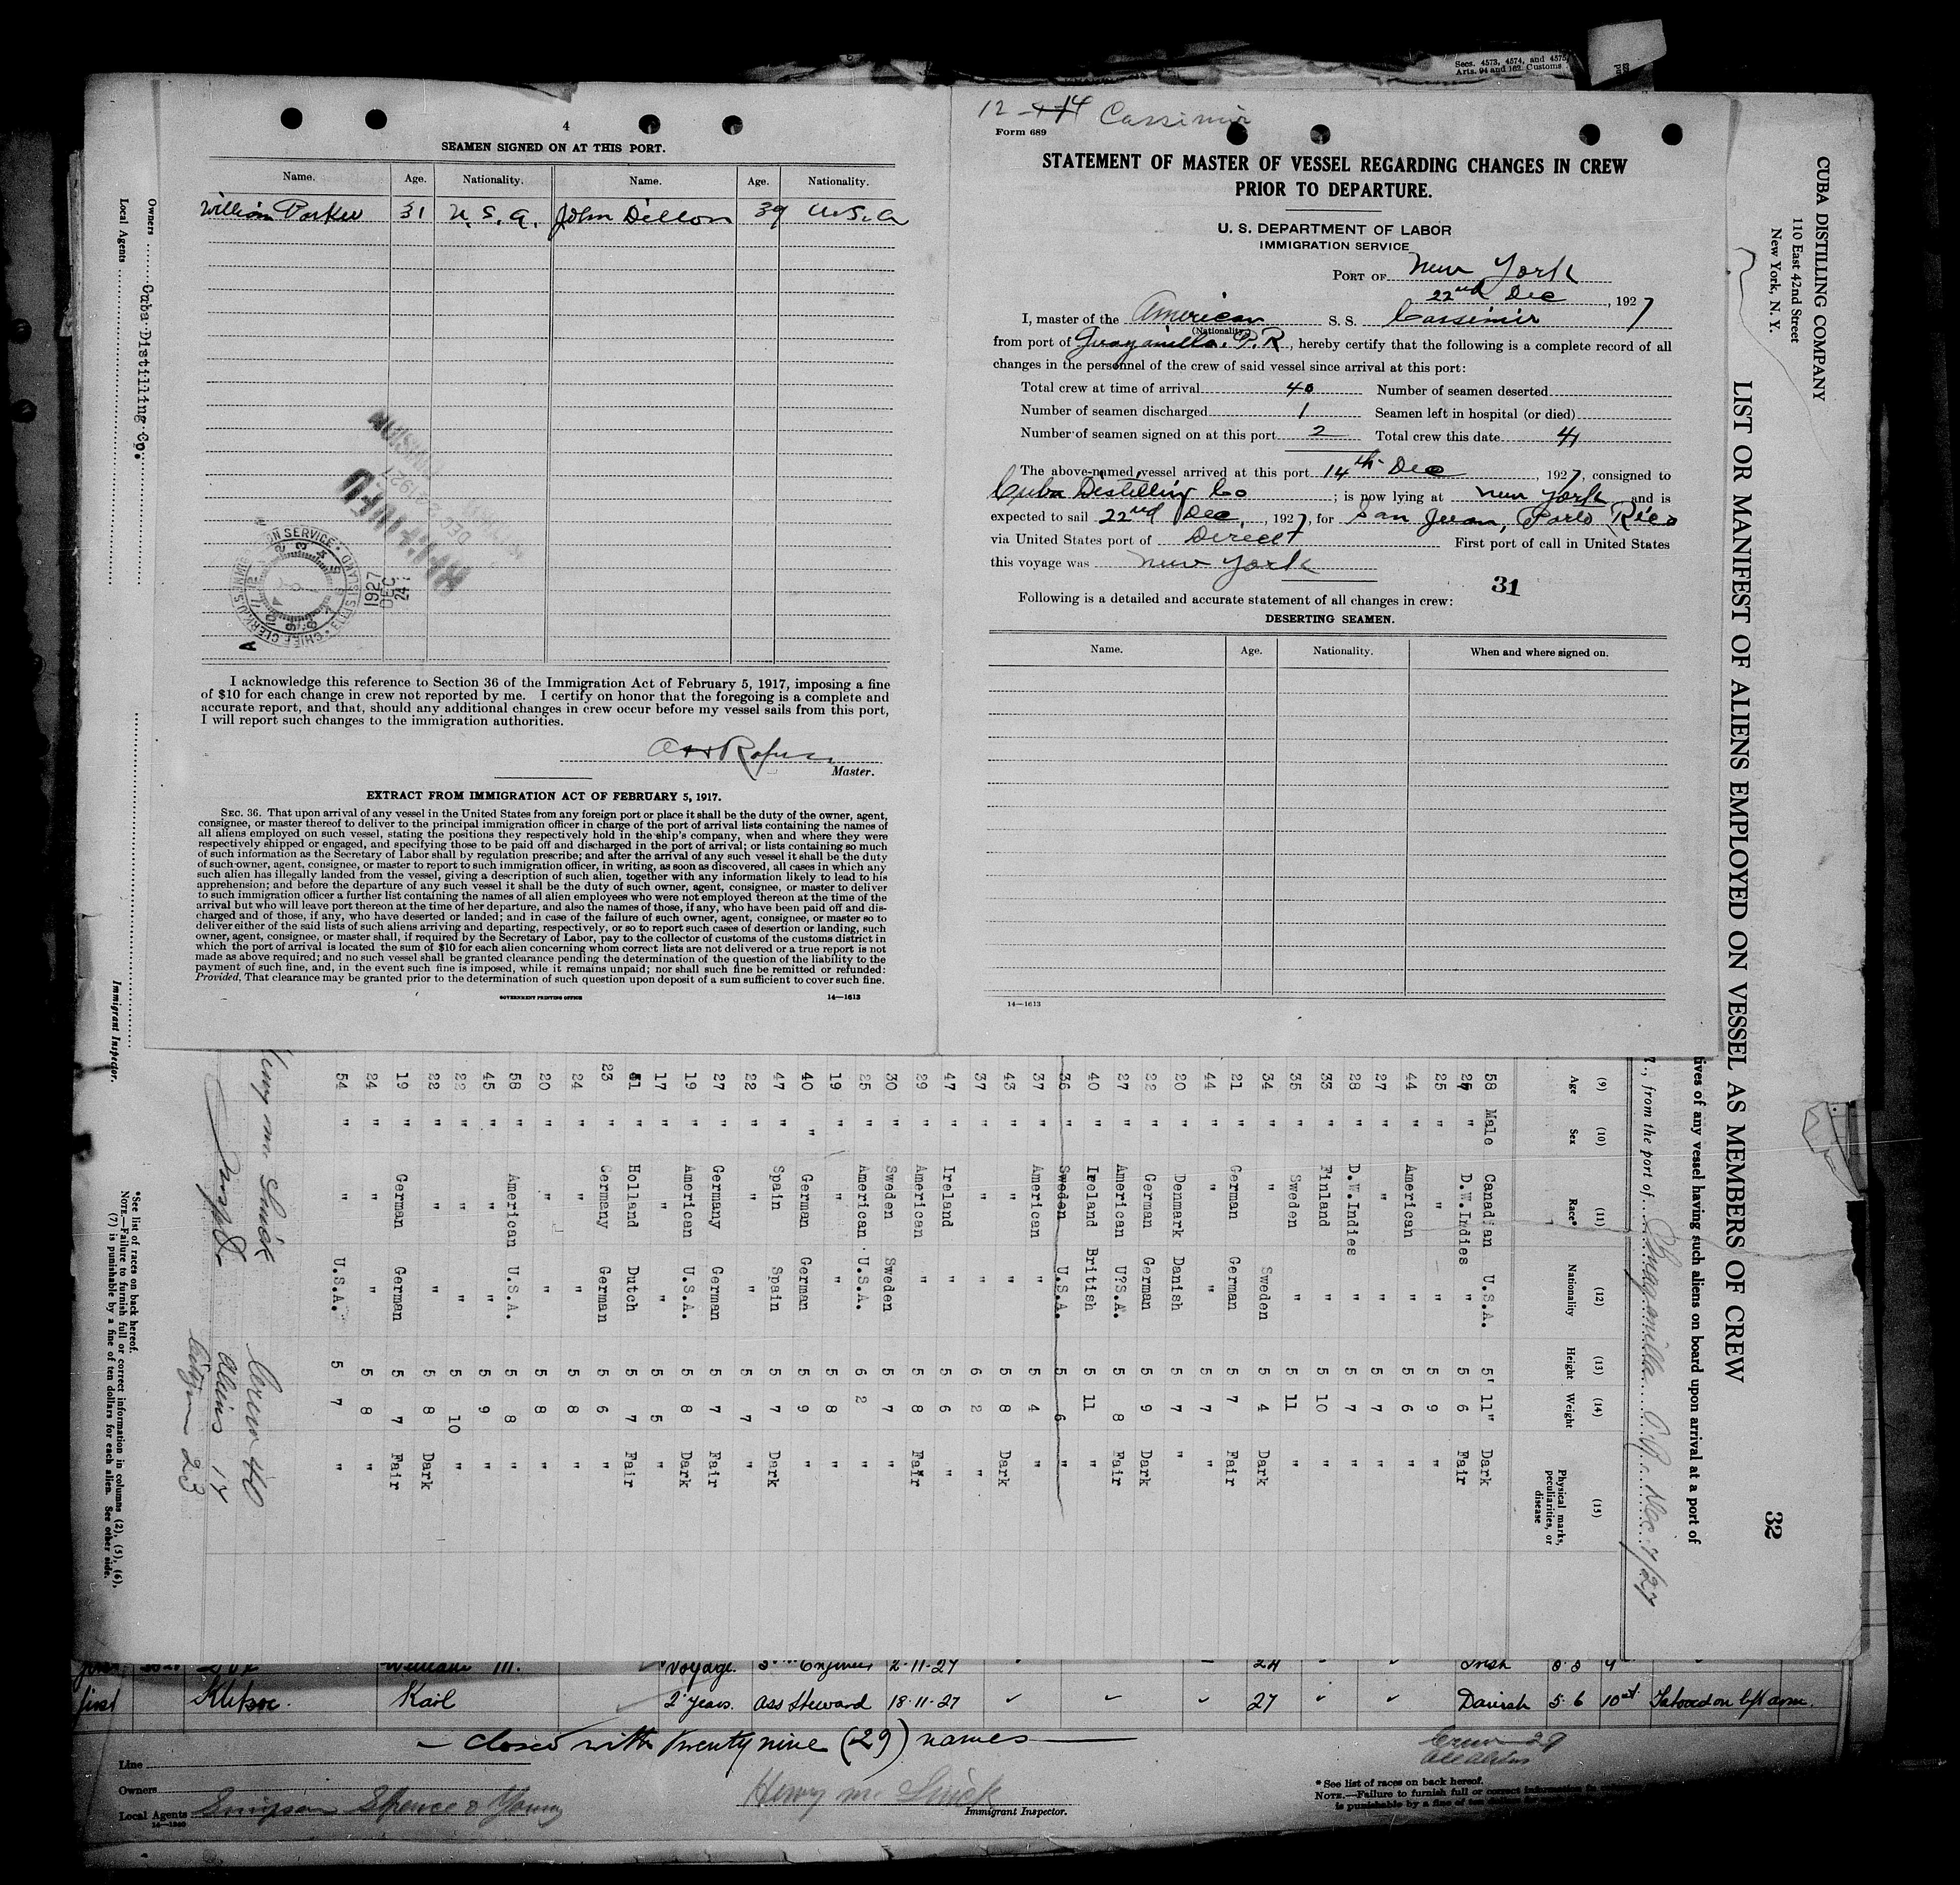 Secs. 4573, 4574, and 4575
Arts. 94 and 162. Customs
4
SEAMEN SIGNED ON AT THIS PORT.
Name. Age. Nationality. Name. Age. Nationality.
William Parker 31 U.S.A. John Dillon 39 U.S.A
DEC 24 1927
I acknowledge this reference to Section 36 of the Immigration Act of February 5, 1917, imposing a fine
of $10 for each change in crew not reported by me. I certify on honor that the foregoing is a complete and
accurate report, and that, should any additional changes in crew occur before my vessel sails from this port,
I will report such changes to the immigration authorities.
Master.
EXTRACT FROM IMMIGRATION ACT OF FEBRUARY 5, 1917.
SEC. 36. That upon arrival of any vessel in the United States from any foreign port or place it shall be the duty of the owner, agent,
consignee, or master thereof to deliver to the principal immigration officer in charge of the port of arrival lists containing the names of
all aliens employed on such vessel, stating the positions they respectively hold in the ship's company, when and where they were
respectively shipped or engaged, and specifying those to be paid off and discharged in the port of arrival; or lists containing so much
of such information as the Secretary of Labor shall by regulation prescribe; and after the arrival of any such vessel it shall be the duty
of such owner, agent, consignee, or master to report to such immigration officer, in writing, as soon as discovered, all cases in which any
such alien has illegally landed from the vessel, giving a description of such alien, together with any information likely to lead to his
apprehension; and before the departure of any such vessel it shall be the duty of such owner, agent, consignee, or master to deliver
to such immigration officer a further list containing the names of all alien employees who were not employed thereon at the time of the
arrival but who will leave port thereon at the time of her departure, and also the names of those, if any, who have been paid off and dis-
charged and of those, if any, who have deserted or landed; and in case of the failure of such owner, agent, consignee, or master so to
deliver either of the said lists of such aliens arriving and departing, respectively, or so to report such cases of desertion or landing, such
owner, agent, consignee, or master shall, if required by the Secretary of Labor, pay to the collector of customs of the customs district in
which the port of arrival is located the sum of $10 for each alien concerning whom correct lists are not delivered or a true report is not
made as above required; and no such vessel shall be granted clearance pending the determination of the question of the liability to the
payment of such fine, and, in the event such fine is imposed, while it remains unpaid; nor shall such fine be remitted or refunded:
Provided, That clearance may be granted prior to the determination of such question upon deposit of a sum sufficient to cover such fine.
GOVERNMENT PRINTING OFFICE 14—1613
12 - 14 Cassimir
Form 689
STATEMENT OF MASTER OF VESSEL REGARDING CHANGES IN CREW
PRIOR TO DEPARTURE.
U. S. DEPARTMENT OF LABOR
IMMIGRATION SERVICE
PORT OF New York
22nd Dec, 1927
I, master of the American S. S. Cassimir
(Nationality)
from port of Guayanilla. P.R., hereby certify that the following is a complete record of all
changes in the personnel of the crew of said vessel since arrival at this port:
Total crew at time of arrival 40 Number of seamen deserted
Number of seamen discharged 1 Seamen left in hospital (or died)
Number of seamen signed on at this port 2 Total crew this date 41
The above-named vessel arrived at this port 14th Dec, 1927, consigned to
Cuba Distilling Co; is now lying at New York and is
expected to sail 22nd Dec, 1927, for San Juan, Porto Rico
via United States port of Direct First port of call in United States
this voyage was New York
31
Following is a detailed and accurate statement of all changes in crew:
DESERTING SEAMEN.
Name. Age. Nationality. When and where signed on.
14—1613
CUBA DISTILLING COMPANY
110 East 42nd Street
New York, N. Y.
LIST OR MANIFEST OF ALIENS EMPLOYED ON VESSEL AS MEMBERS OF CREW
32
tives of any vessel having such aliens on board upon arrival at a port of
7., from the port of
(9) (10) (11) (12) (13) (14) (15)
Age Sex Race* Nationality Height Weight Physical marks, peculiarities, or disease
58 Male Canadian U.S.A. 5' 11" Dark
" D.W.Indies " 5 6 Fair
25 " " " 5 9 "
44 " American " 5 6 "
27 " " " 5 7 "
28 " D.W.Indies " 5 7 "
33 " Finland " 5 10 "
35 " Sweden " 5 11 "
34 " " Sweden 5 4 Dark
21 " German German 5 7 Fair
44 " " " 5 7 "
20 " Denmark Danish 5 7 "
22 " German German 5 9 Dark
27 " American U?S.A. 5 8 Fair
40 " Ireland British 5 11 "
36 " Sweden U.S.A. 5 6 "
37 " American " 5 4 "
43 " " " 5 8 Dark
37 " " " 6 2 "
47 " Ireland " 5 6 "
29 " American " 5 8 Fair
30 " Sweden Sweden 5 7 "
25 " American U.S.A. 6 2 "
19 " " " 5 8 "
40 " German German 5 9 "
47 " Spain Spain 5 7 Dark
22 " " " 5 7 "
27 " Germany German 5 7 Fair
19 " American U.S.A. 5 8 Dark
17 " " " 5 5 "
" Holland Dutch 5 7 Fair
23 " Germany German 5 6 "
24 " " " 5 8 "
20 " " " 5 8 "
58 " American U.S.A. 5 8 "
45 " " " 5 9 "
22 " " " 5 10 "
22 " " " 5 8 Dark
19 " German German 5 7 Fair
24 " " " 5 8 "
54 " " U.S.A. 5 7 "
Crew 40
Aliens 17
Citizen 23
Immigrant Inspector.
Owners Cuba Distilling Co.
Local Agents
*See list of races on back hereof.
NOTE.—Failure to furnish full or correct information in columns (2), (5), (6),
(7) is punishable by a fine of ten dollars for each alien. See other side.
William M. Voyage. Engineer 2-11-27 24 Irish
first Karl 2 years. Ass Steward 18-11-27 27 Danish 5-6 10st Tatooed on left arm.
- closed with Twenty nine (29) names
Crew 29
All Aliens
Line
Owners
Local Agents Simpson Spence & Young
Immigrant Inspector.
* See list of races on back hereof.
NOTE.—Failure to furnish full or correct information in
is punishable by a fine of ten dollars for